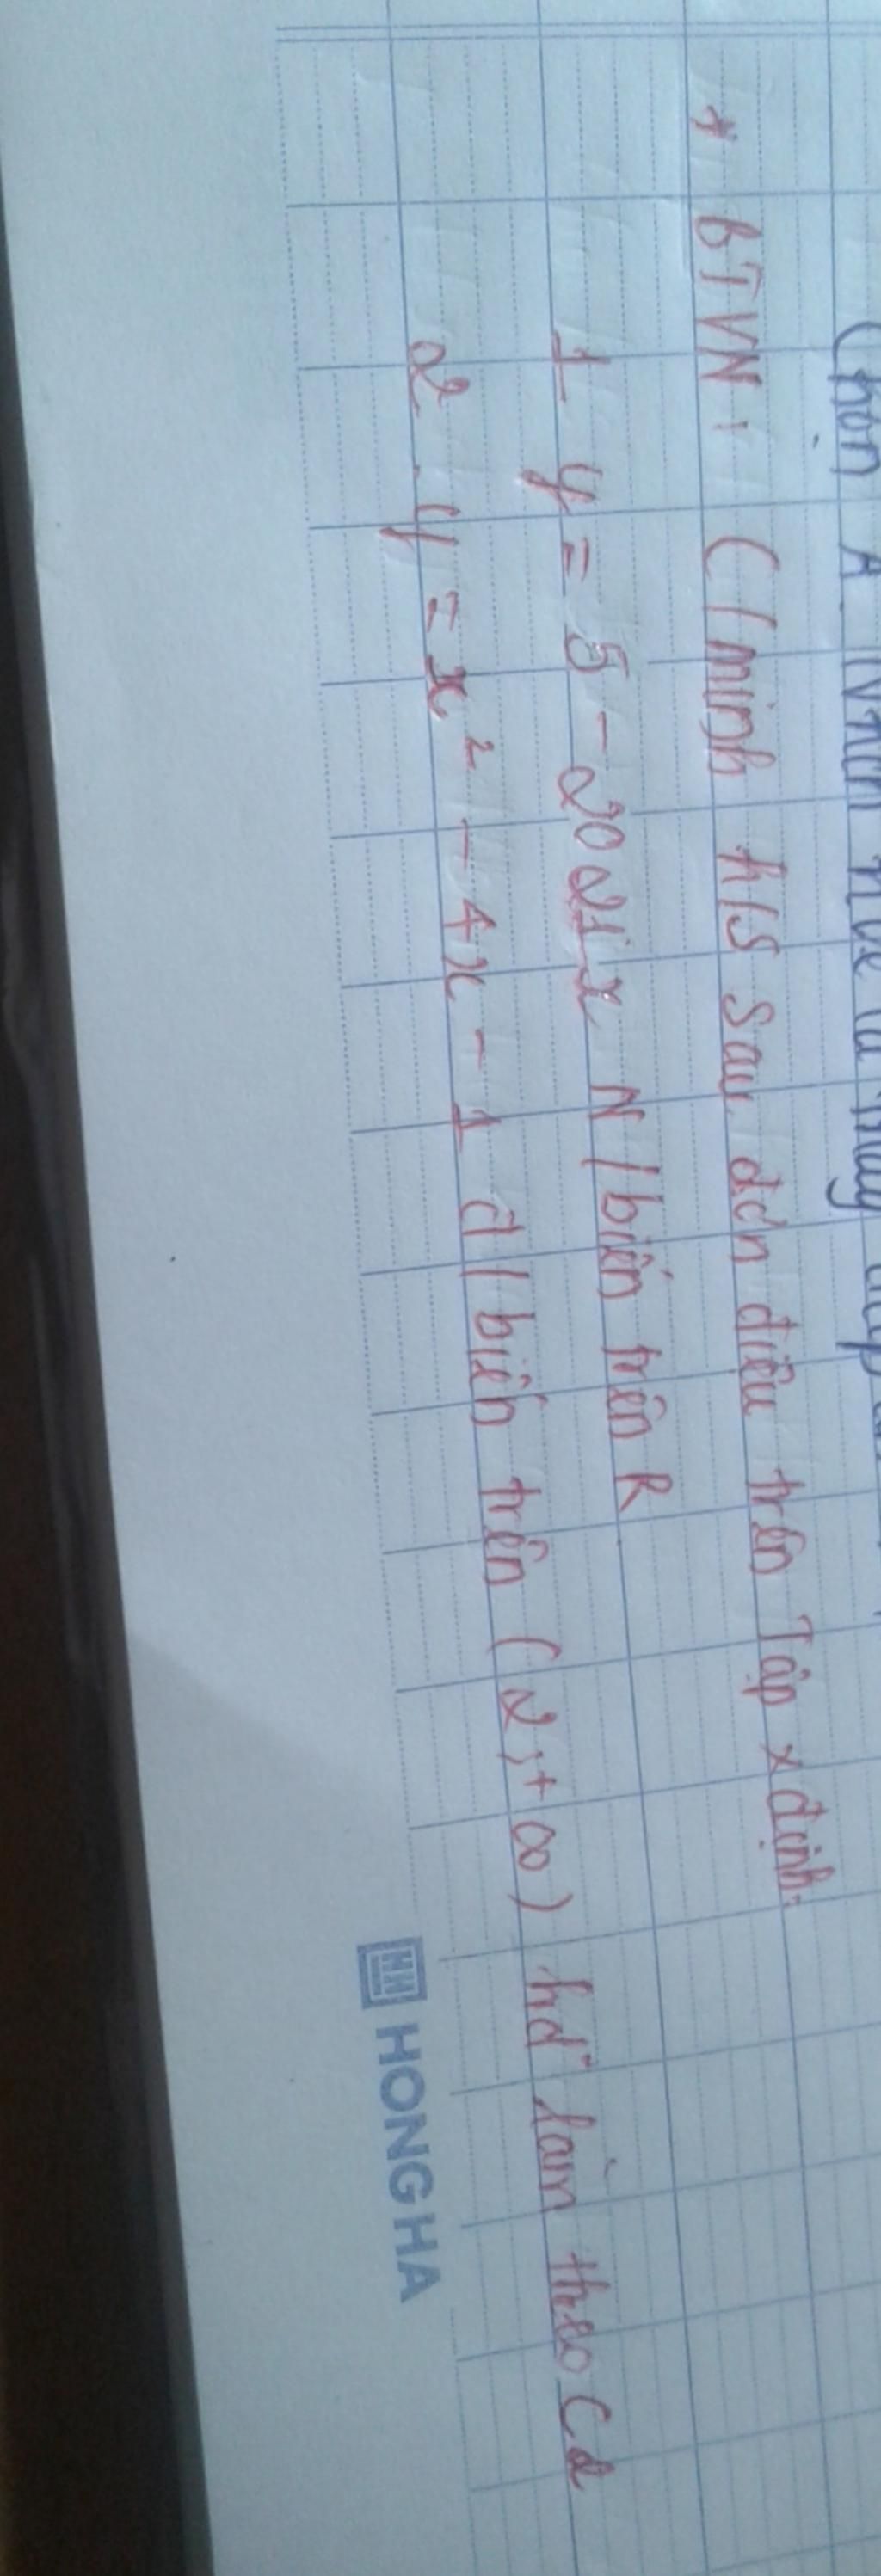 Chọn A. Nhìn
* BTVN: C/minh h/s sau đơn điệu trên Tập x định.
1 y = 5 - 2021x N/biến trên R
2. y = x² - 4x - 1 đ/biến trên (2; + ∞) hd làm theo C2
HONG HA